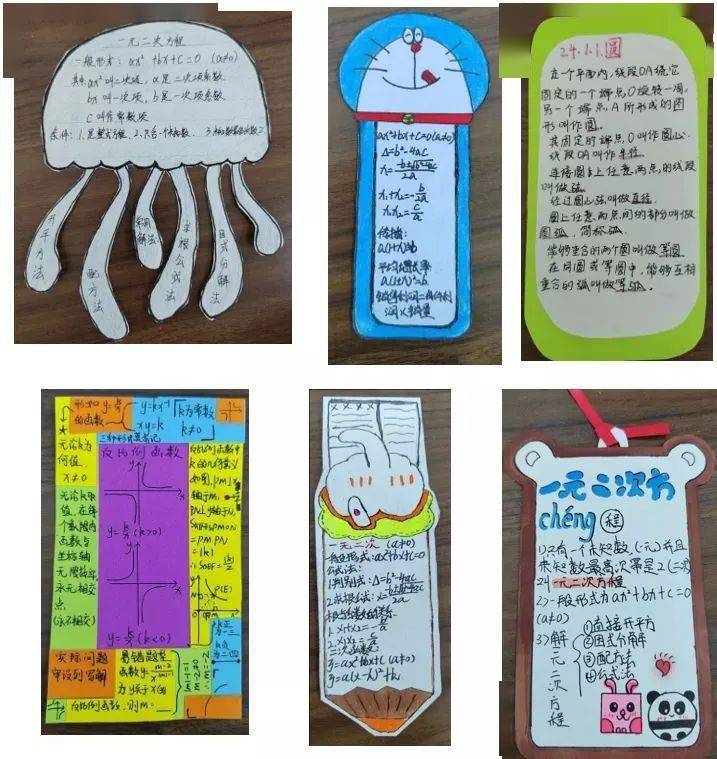 一元二次方程
一般形式: ax²+bx+c=0 (a≠0)
其中ax²叫二次项, a是二次项系数
bx叫一次项, b是一次项系数
c叫作常数项
条件: 1.是整式方程. 2.只含一个未知数.
开平方法
配方法
求根公式法
因式分解法
ax²+bx+c=0(a≠0)
Δ=b²-4ac
x₁+x₂=-b/a
x₁x₂=c/a
传播:
平均增长率
24.1.1.圆
在一个平面内, 线段OA绕它
固定的一个端点O旋转一周,
另一个端点A所形成的图
形叫作圆.
其固定的端点O叫作圆心.
线段OA叫作半径.
连接圆上任意两点的线段
叫做弦.
经过圆心弦叫做直径.
圆上任意两点间的部分叫做
圆弧. 简称弧.
能够重合的两个圆叫做等圆.
在同圆或等圆中, 能够互相
重合的弧叫做等弧.
形如y=k/x
的函数
y=kx⁻¹
xy=k
k为常数
k≠0
反比例函数
无论k为
何值,
x≠0
无论k取
值, 在每
个象限内
函数与
坐标轴
无限接近
永不相交
点
(永不相交)
y=k/x (k>0)
y=k/x (k<0)
=PM·PN
=|k|
P(E)
实际问题
审设列写解
易错题型
为y关于x的
反比例函数, 则m=
一元二次 (a≠0)
一般形式: ax²+bx+c=0
公式法:
1.判别式: Δ=b²-4ac
2.求根公式:
根与系数的关系:
1. x₁+x₂=-b/a
2. x₁x₂=c/a
y=ax²+bx+c (a≠0)
y=a(x-h)²+k
一元二次方
chéng 程
1)只有一个未知数, (一元)并且
未知数最高次幂是2 (二次)
一元二次方程
2)一般形式为ax²+bx+c=0
(a≠0)
3)解一元二次方程
①直接开平方
②因式分解
③配方法
④公式法